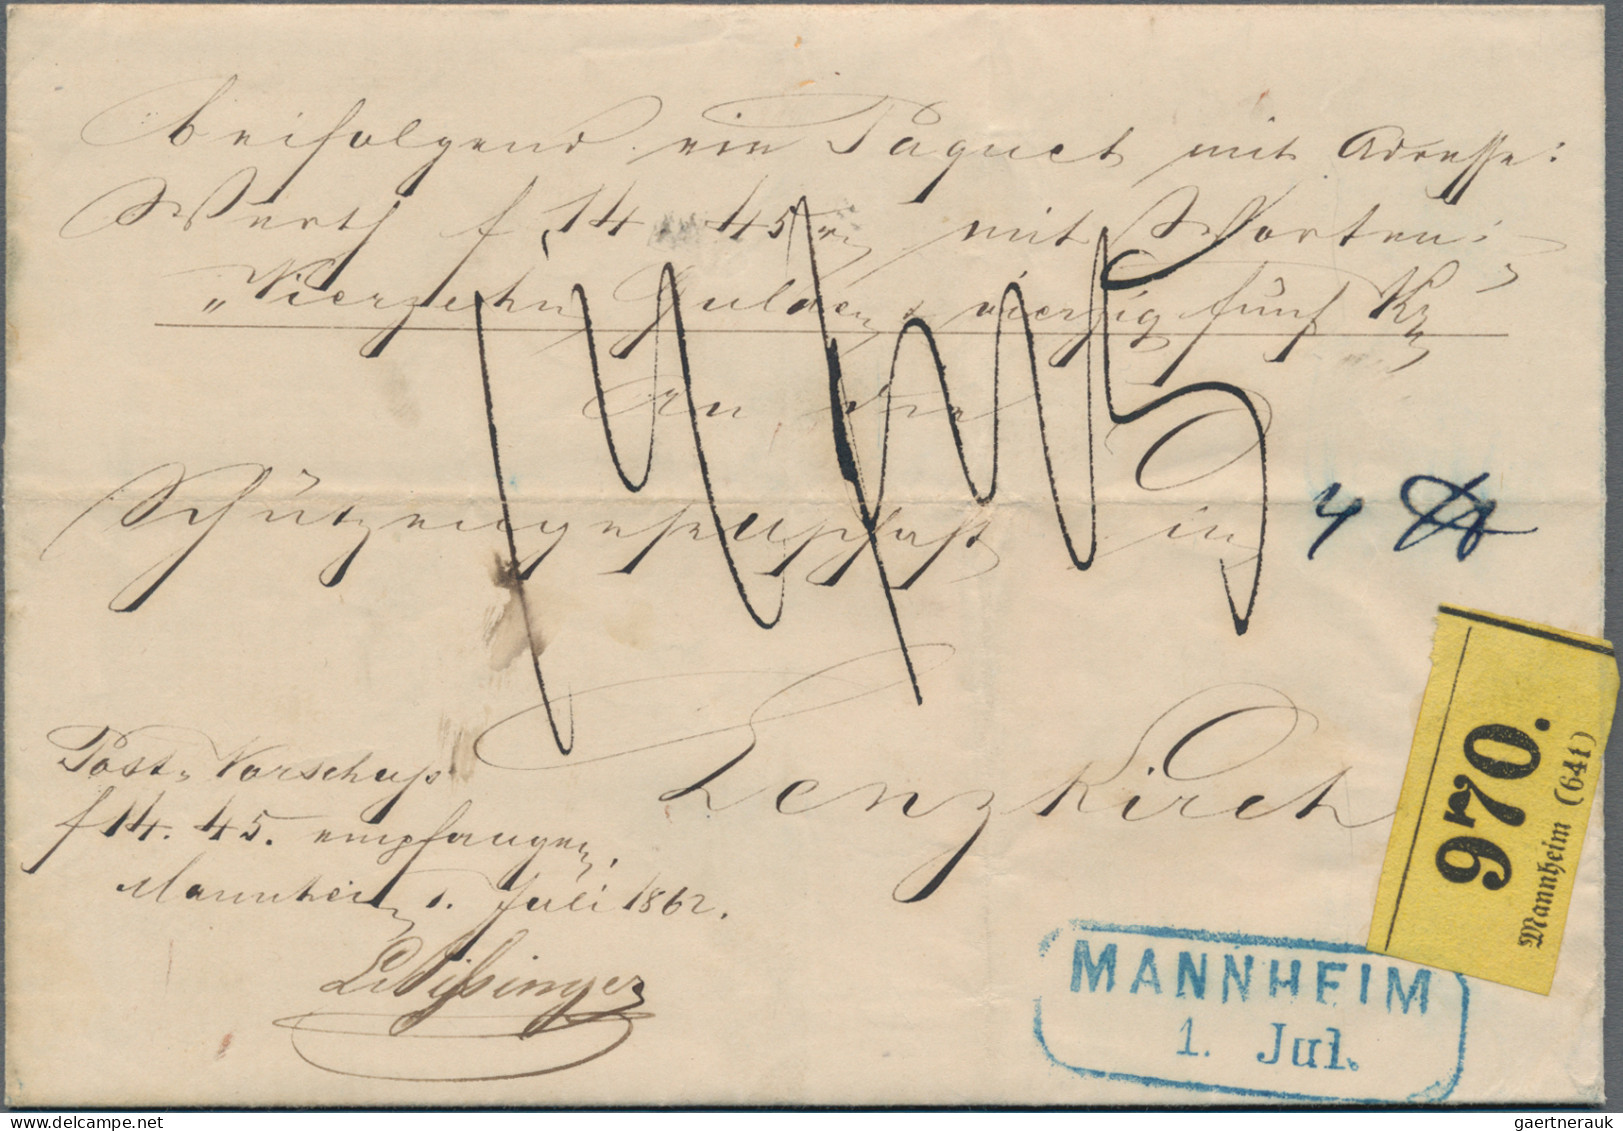 beifolgend ein Paquet mit Adresse:
Werth f 14 45 xr mit Worten:
"Vierzehn Gulden & vierzig fünf Kr"
An die
Schützengesellschaft in
Lenzkirch
14/45
4 ℔
Post-Vorschuß
f 14. 45. empfangen,
Mannheim 1. Juli 1862.
970.
Mannheim (641)
MANNHEIM
1. Jul.
gaertnerauk